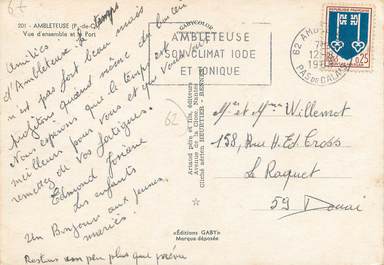 67
201 - AMBLETEUSE (P.-de-C.)
Vue d'ensemble et le Fort
Amitiés
d'Ambleteuse. Le temps
n'est pas fort beau mais
profitons quand même du bon air
Nous espérons que le temps est
meilleur pour vous et que vous vous
remettez de vos fatigues.
Edmond Josiane
Les enfants
Un Bonjour aux jeunes
mariés.
Restons un peu plus que prévu
GABYCOLOR
Artaud père et fils, éditeurs
Avenue de la Close Nantes
Cliché aérien HEURTIER - RENNES
«Editions GABY»
Marque déposée
62
AMBLETEUSE
SON CLIMAT IODE
ET TONIQUE
62 AMBLETEUSE
PAS DE CALAIS
0,25
Mr et Mme Willemot
158, Rue H.Ed. Cross
Le Raquet
59 Douai